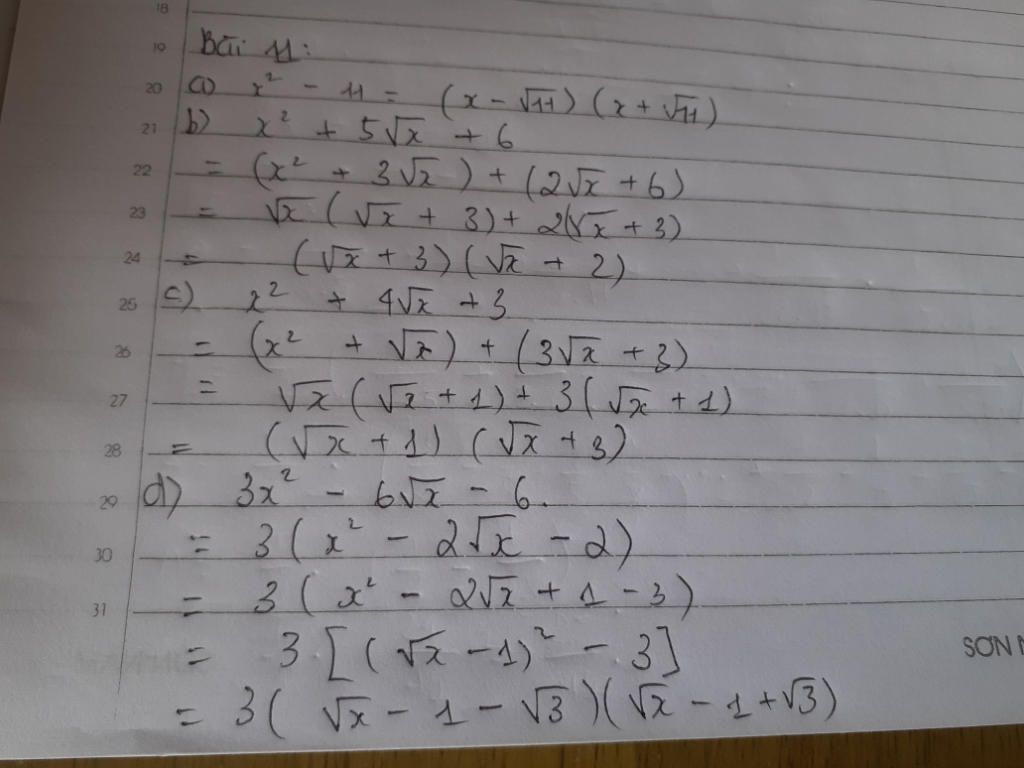 18
19 Bài 11:
20 a) x² - 11 = (x - √11)(x + √11)
21 b) x² + 5√x + 6
22 = (x² + 3√x) + (2√x + 6)
23 = √x(√x + 3) + 2(√x + 3)
24 = (√x + 3)(√x + 2)
25 c) x² + 4√x + 3
26 = (x² + √x) + (3√x + 3)
27 = √x(√x + 1) + 3(√x + 1)
28 = (√x + 1)(√x + 3)
29 d) 3x² - 6√x - 6.
30 = 3(x² - 2√x - 2)
31 = 3(x² - 2√x + 1 - 3)
= 3[(√x - 1)² - 3]
SƠN
= 3(√x - 1 - √3)(√x - 1 + √3)